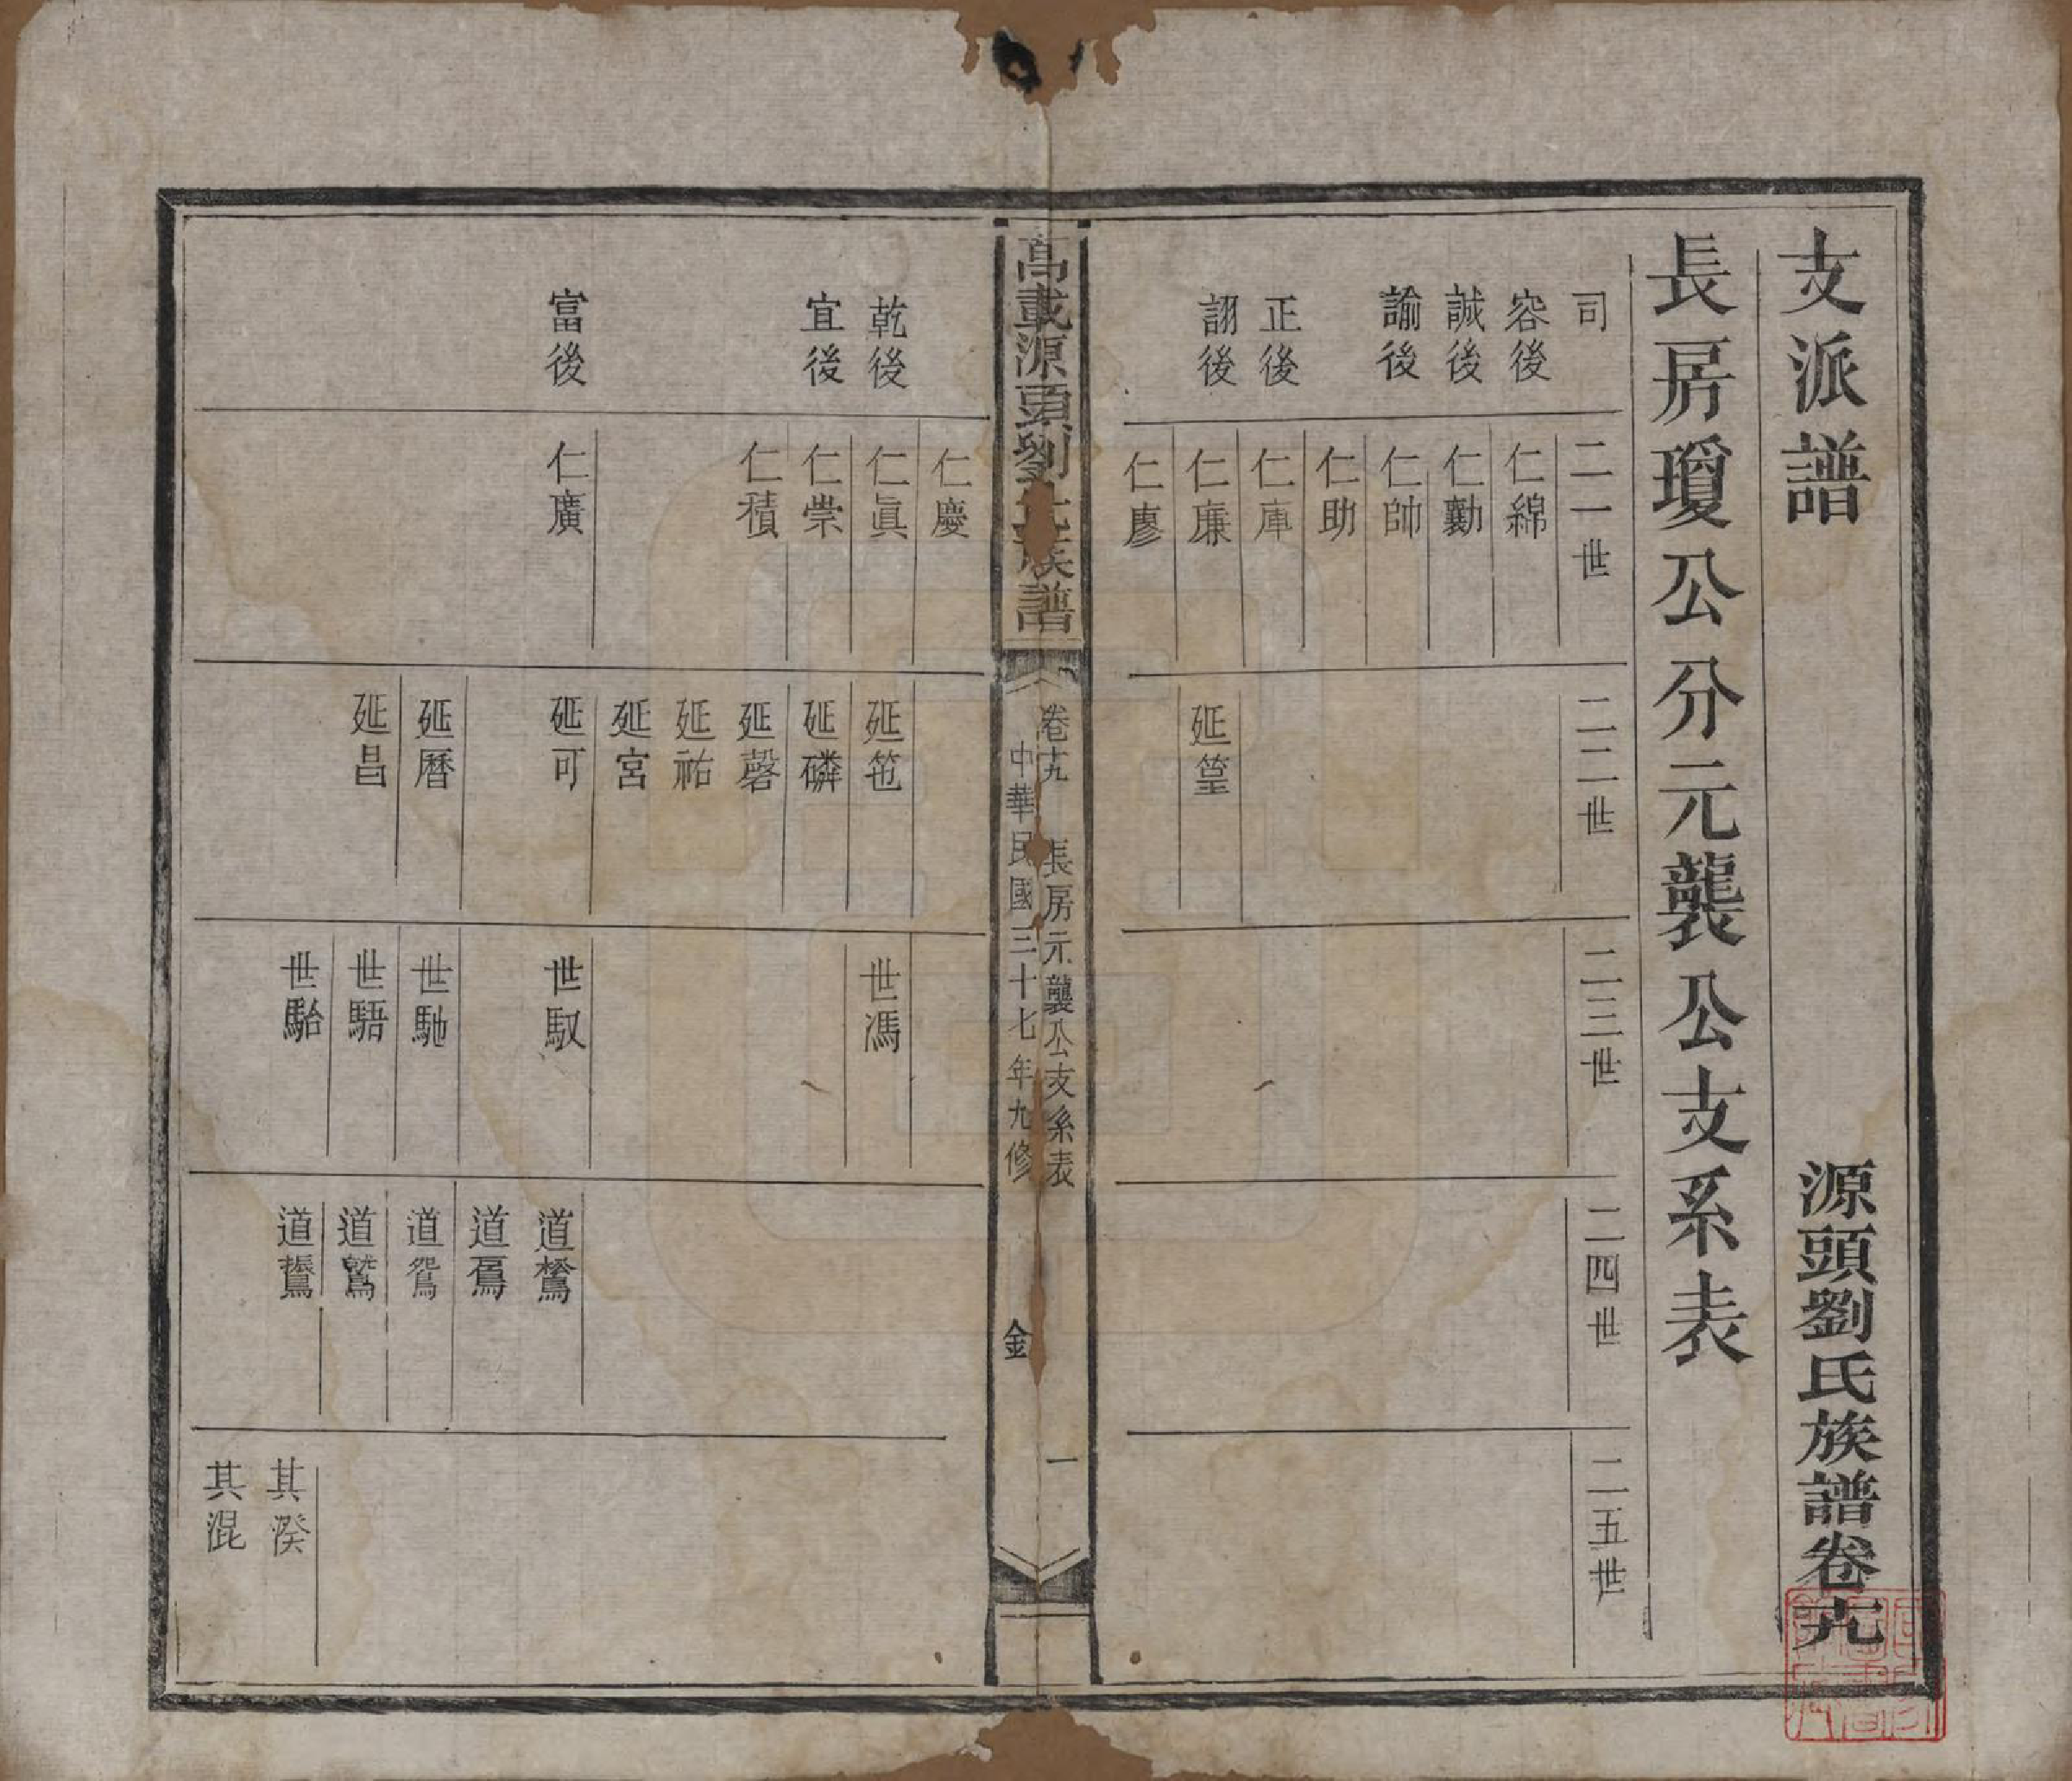 支派譜
源頭劉氏族譜卷十九
長房瓊公分元襲公支系表
司
二一世
二二世
二三世
二四世
二五世
容後
仁綿
誠後
仁勷
諭後
仁帥
仁助
正後
仁庫
詡後
仁廉
延篁
仁廖
萬載源頭劉氏族譜
卷十九
長房元襲公支系表
一
中華民國三十七年九修
金
仁慶
乾後
仁眞
延笆
世馮
宜後
仁崇
延磷
仁積
延磬
延祐
延宮
富後
仁廣
延可
世馭
道鶖
道鳸
延曆
世馳
道鴛
延昌
世䮏
道鷲
世駘
道鷙
其湀
其混